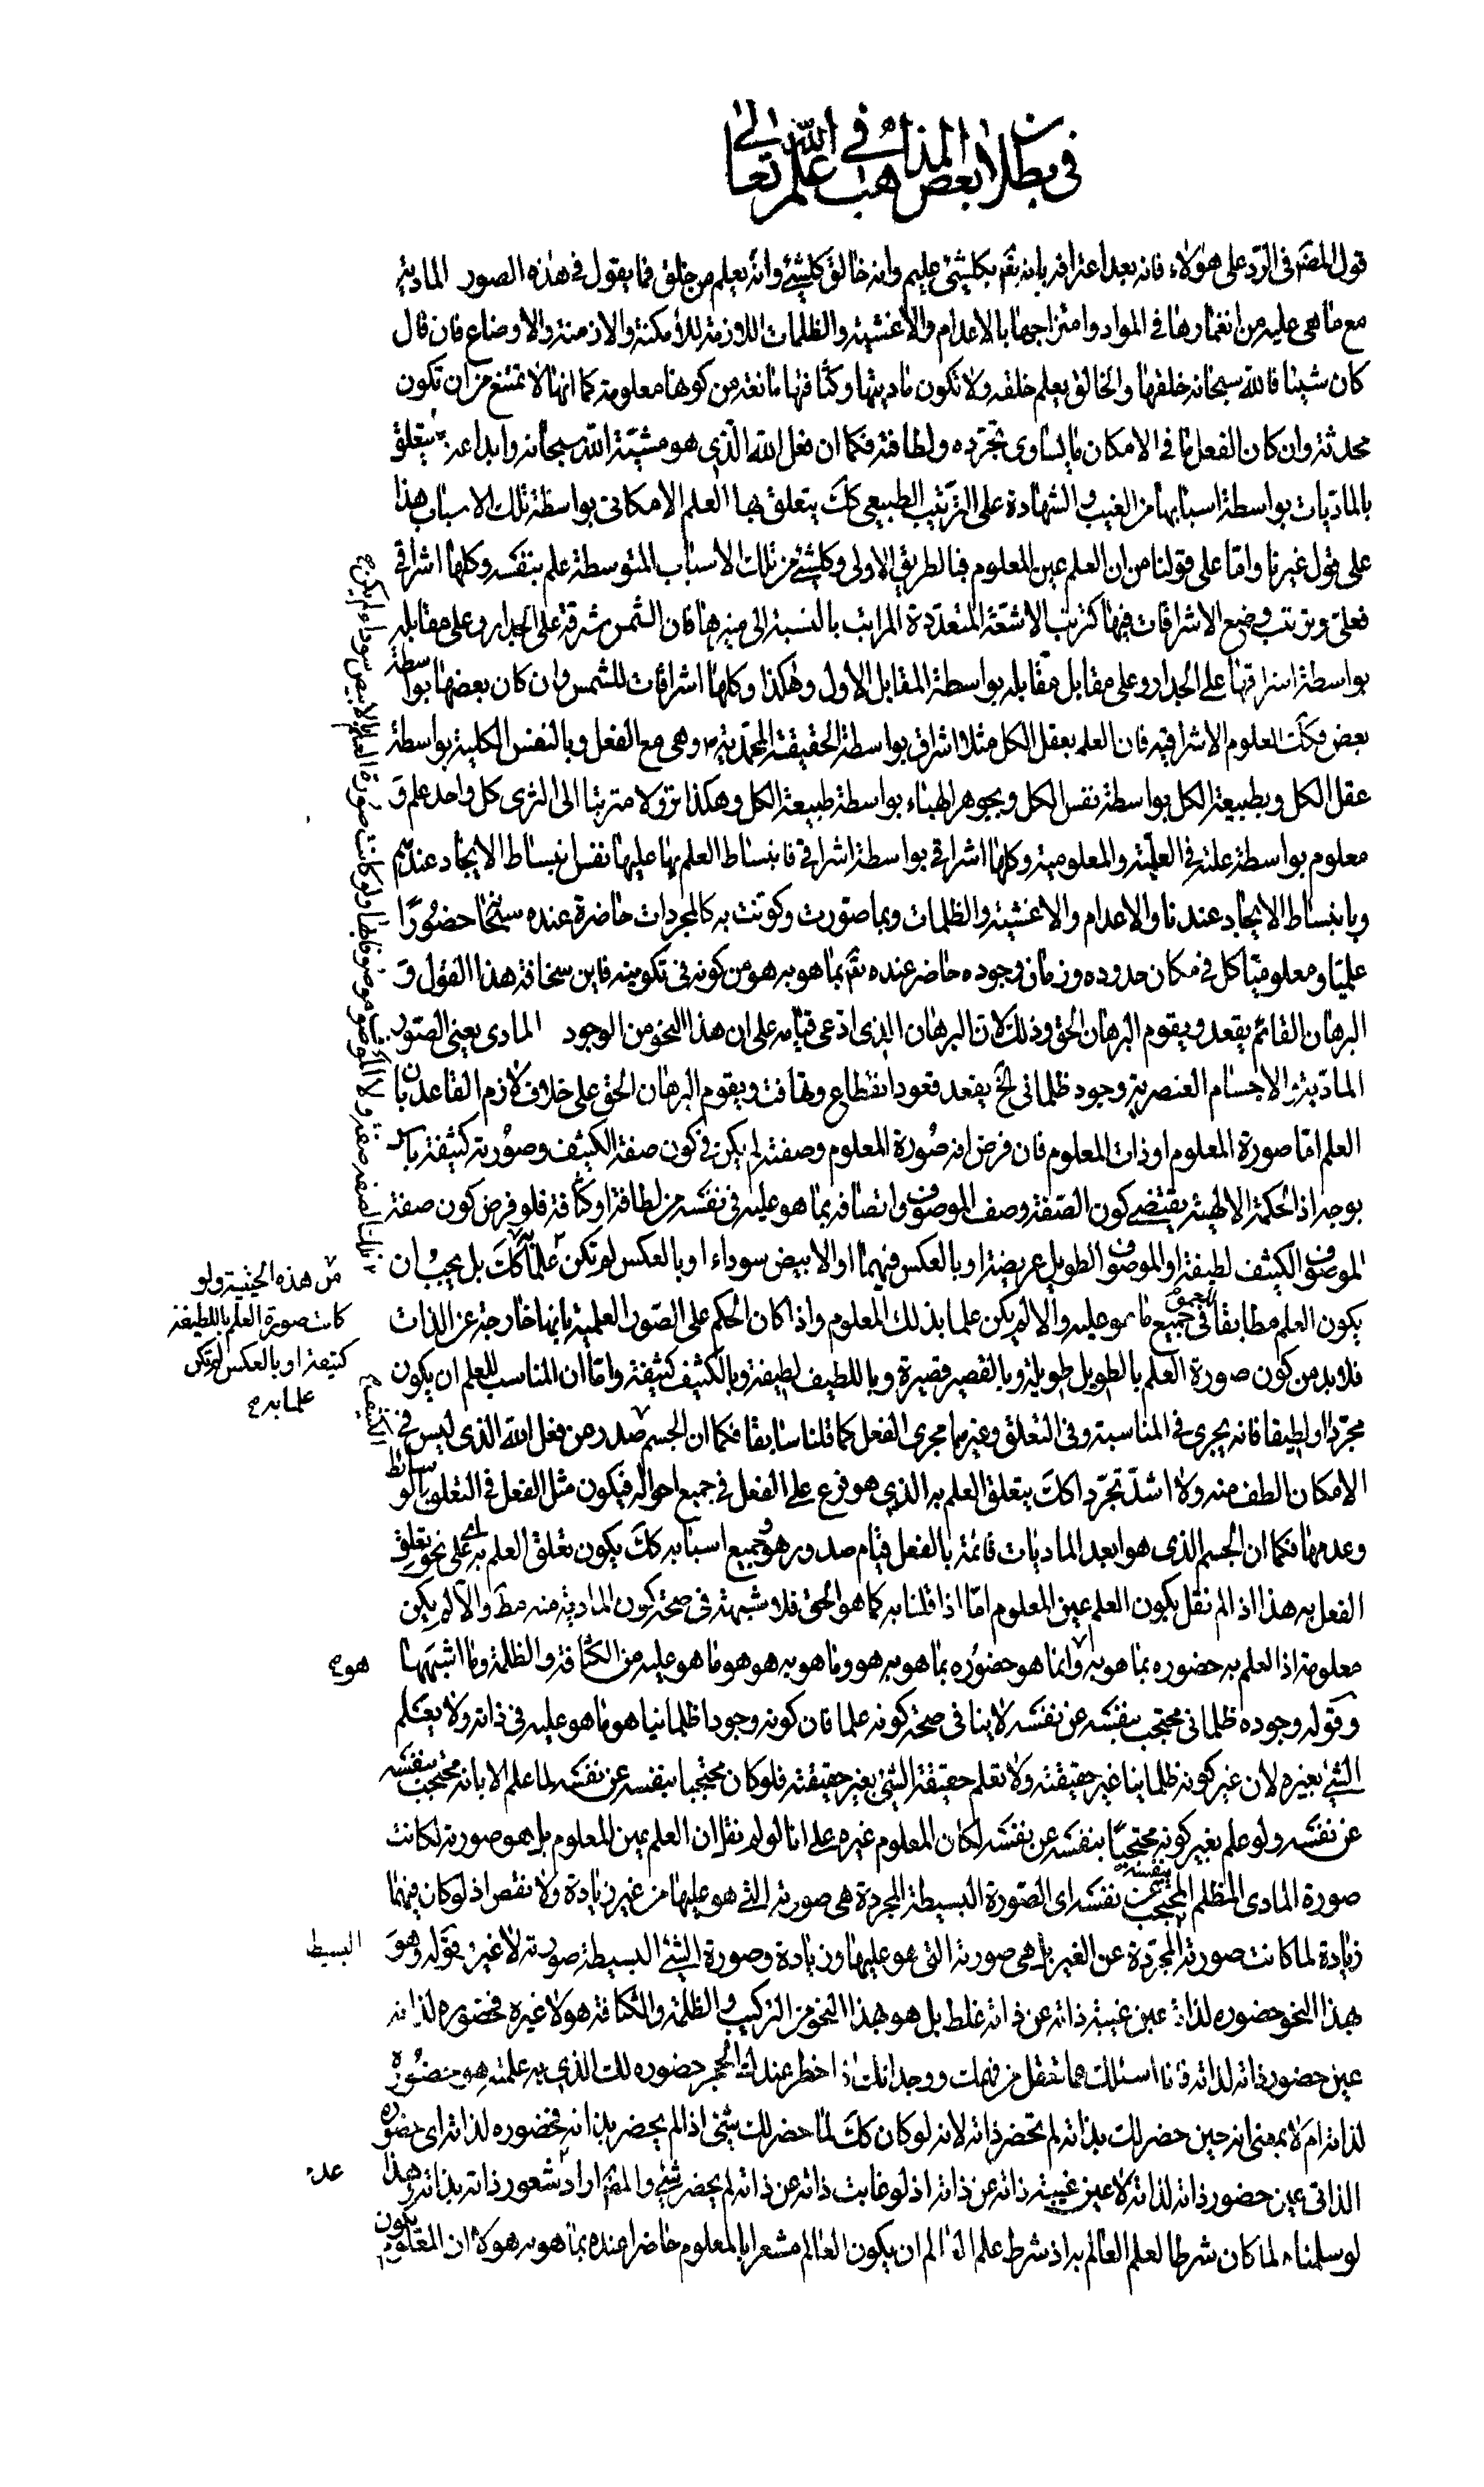 في بطلان بعض المذاهب في علم الله تعالى
قول المصنف في الرد على هؤلاء فانه بعد اعترافه بانه تعالى بكلشيء عليم وانه خالق كلشيء وانه يعلم من خلق فما يقول في هذه الصور المادية
مع ما هي عليه من انغمارها في المواد وامتزاجها بالاعدام والاغشية والظلمات اللازمة للامكنة والازمنة والاوضاع فان قال
كان شيئا فالله سبحانه خلقها والخالق يعلم خلقه ولا تكون ماديتها وكثافتها مانعة من كونها معلومة كما انها لا تمتنع من ان تكون
محدثة وان كان الفعل ما في الامكان ما يساوى تجرده ولطافته فكما ان فعل الله الذى هو مشية الله سبحانه وابداعه يتعلق
بالماديات بواسطة اسبابها من الغيب والشهادة على الترتيب الطبيعي كك يتعلق بها العلم الامكانى بواسطة تلك الاسباب هذا
على قول غيرنا واما على قولنا من ان العلم عين المعلوم فبالطريق الاولى وكلشيء من تلك الاسباب المتوسطة علم بنفسه وكلها اشراقى
فعلى وترتب وضع الاشراقات فيها كترتب الاشعة المتعددة المراتب بالنسبة الى منيرها فان الشمس مشرقة على الجدار وعلى مقابله
بواسطة اشراقها على الجدار وعلى مقابل مقابله بواسطة المقابل الاول وهكذا وكلها اشراقات للشمس وان كان بعضها بواسطة
بعض فكك العلوم الاشراقية فان العلم بعقل الكل مثلا اشراق بواسطة الحقيقة المحمدية وهى مع الفعل وبالنفس الكلية بواسطة
عقل الكل وبطبيعة الكل بواسطة نفس الكل وبجوهر الهباء بواسطة طبيعة الكل وهكذا نزولا مترتبا الى الثرى كل واحد علم و
معلوم بواسطة علته فى العلمية والمعلومية وكلها اشراقى بواسطة اشراقى فانبساط العلم بها عليها نفس انبساط الايجاد عندهم
وبانبساط الايجاد عندنا والاعدام والاغشية والظلمات وبما صورت وكونت به كالمجردات حاضرة عنده سبحانه حضورا
علميا ومعلوميا كل فى مكان حدوده وزمان وجوده حاضر عنده تعالى بما هو به هو من كونه فى تكوينه فاين سخافة هذا القول و
البرهان القائم يقعد ويقوم البرهان الحق وذلك لان البرهان الذى ادعى قيامه على ان هذا النحو من الوجود المادى يعنى الصور
المادية والاجسام العنصرية وجود ظلمانى الخ يقعد قعود انقطاع وتهافت ويقوم البرهان الحق على خلاف لازم القاعد بان
العلم اما صورة المعلوم او ذات المعلوم فان فرض انه صورة المعلوم وصفته لم يكن فى كون صفة الكثيف وصورته كثيفة باس
بوجه اذ الحكمة الالهية يقتضى كون الصفة وصف الموصوف واتصافه بما هو عليه فى نفسه من لطافة او كثافة فلو فرض كون صفة
الموصوف الكثيف لطيفة او الموصوف الطويل عريضة او بالعكس فيهما او الابيض سوداء او بالعكس لم تكن علما كك بل يجب ان
يكون العلم مطابقا فى جميع ما هو عليه والا لم يكن علما بذلك المعلوم واذا كان الحكم على الصور العلمية بانها خارجة عن الذات
فلا بد من كون صورة العلم بالطويل طويلة وبالقصير قصيرة وباللطيف لطيفة وبالكثيف كثيفة واما ان المناسب للعلم ان يكون
مجردا ولطيفا فانه يجرى فى المناسبة وفى التعلق وغيرهما مجرى الفعل كما قلنا سابقا فكما ان الجسم صدر من فعل الله الذى ليس فى
الامكان الطف منه ولا اشد تجردا كك يتعلق العلم به الذى هو فرع على الفعل فى جميع احواله فيكون مثل الفعل فى التعلق بالوسائط
وعدمها فكما ان الجسم الذى هو ابعد الماديات قائمة بالفعل قيام صدور هو وجميع اسبابه كك يكون تعلق العلم به على نحو تعلق
الفعل به هذا اذا لم نقل بكون العلم عين المعلوم اما اذا قلنا به كما هو الحق فلا شبهة فى صحة كون المادية منه مط والا لم يكن
معلومة اذ العلم به حضوره بما هو به وانما هو حضوره بما هو به هو وما هو به هو هو ما هو عليه من الكثافة والظلمة وما اشبهها
وقوله وجوده ظلمانى محتجب بنفسه عن نفسه لا ينافى صحة كونه علما فان كونه وجودا ظلمانيا هو ما هو عليه فى ذاته ولا يعلم
الشيء بغيره لان غير كونه ظلمانيا غير حقيقته ولا تعلم حقيقة الشيء بغير حقيقته فلو كان محتجبا بنفسه عن نفسه لما علم الا بانه محتجب بنفسه
عن نفسه ولو علم بغير كونه محتجبا بنفسه عن نفسه لكان المعلوم غيره على انا لو لم نقل ان العلم عين المعلوم بل هو صورته لكانت
صورة المادى المظلم المحتجب بنفسه عن نفسه اى الصورة البسيطة المجردة هى صورته التى هو عليها من غير زيادة ولا نقص اذ لو كان فيهما
زيادة لما كانت صورته المجردة عن الغير بل هى صورته التى هو عليها وزيادة وصورة الشيء البسيطة صورته لا غير فقوله وهو
بهذا النحو حضوره لذاته عين غيبة ذاته عن ذاته غلط بل هو بهذا النحو من التركيب والظلمة والكثافة هو لا غيره فحضوره لذاته
عين حضور ذاته لذاته فانا اسئلك عما تعقل من فهمك ووجدانك اذا خطر عندك الحجر حضوره لك الذى به علمته هو حضوره
لذاته ام لا بمعنى انه حين حضر لك بذاته لم تحضر ذاته لانه لو كان كك لما حضر لك شيء اذا لم يحضر بذاته فحضوره لذاته اى حضوره
الذاتى عين حضور ذاته لذاته لا عين غيبة ذاته عن ذاته اذ لو غابت ذاته عن ذاته لم يحضر شيء والمصنف اراد شعور ذاته بذاته وهذا
لو سلمناه لما كان شرطا لعلم العالم به اذ شرط علم العالم ان يكون العالم مشعرا بالمعلوم حاضرا عنده بما هو به هو لا ان المعلوم يكون
من هذه الحيثية ولو
كانت صورة العلم باللطيفة
كثيفة او بالعكس لم تكن
علما به
هو
البسيط